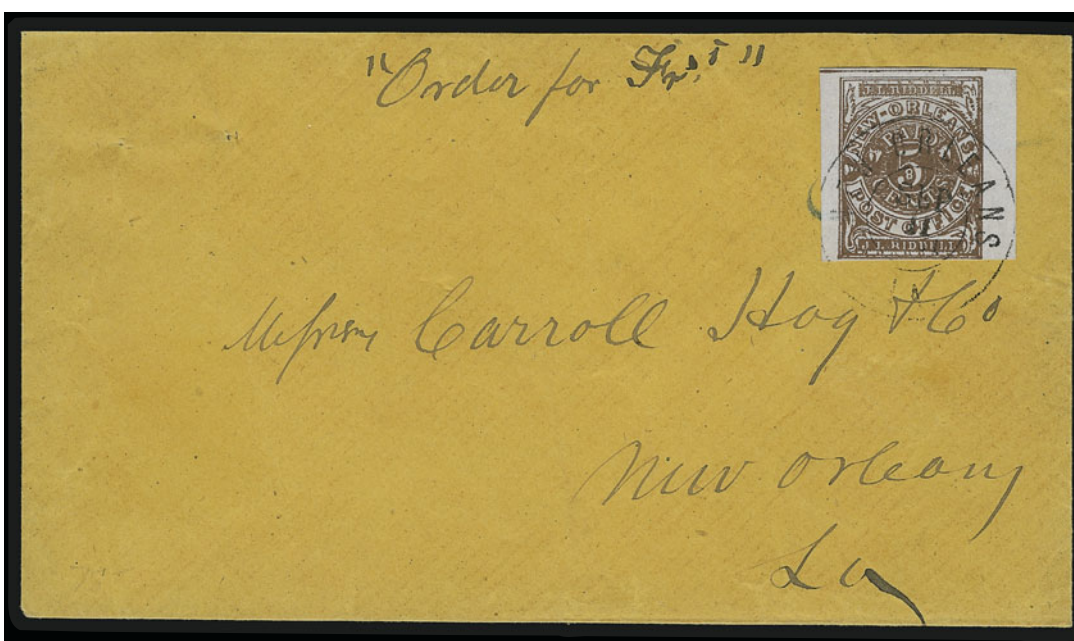 "Order for
NEW-ORLEANS
PAID
5
CENTS
POST OFFICE
J.L. RIDDELL
ORLEANS
Messrs Carroll Hoy & Co
New Orleans
La